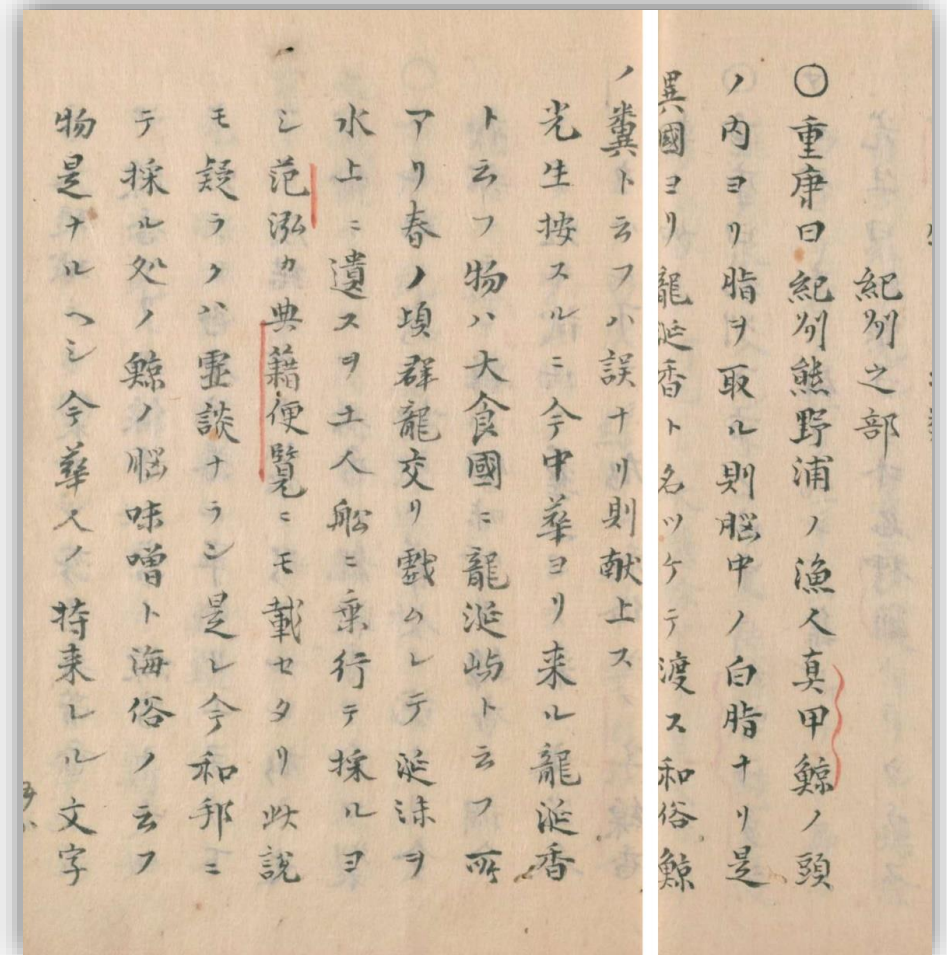 紀州之部
○重康曰紀州熊野浦ノ漁人真甲鯨ノ頭
ノ内ヨリ脂ヲ取ル則脳中ノ白脂ナリ是
異國ヨリ龍涎香ト名ツケテ渡ス和俗鯨
ノ糞ト云フハ誤ナリ則献上ス
光生按スルニ今中華ヨリ来ル龍涎香
ト云フ物ハ大食國ニ龍涎嶼ト云フ所
アリ春ノ頃群龍交リ戯ムレテ涎沫ヲ
水上ニ遺スヲ土人舩ニ乗行テ採ルヨ
シ范泓カ典籍便覧ニモ載セタリ此說
モ疑ラクハ霊談ナラン是レ今和邦ニ
テ採ル処ノ鯨ノ脳味噌ト海俗ノ云フ
物是ナルヘシ今華人ノ持来レル文字